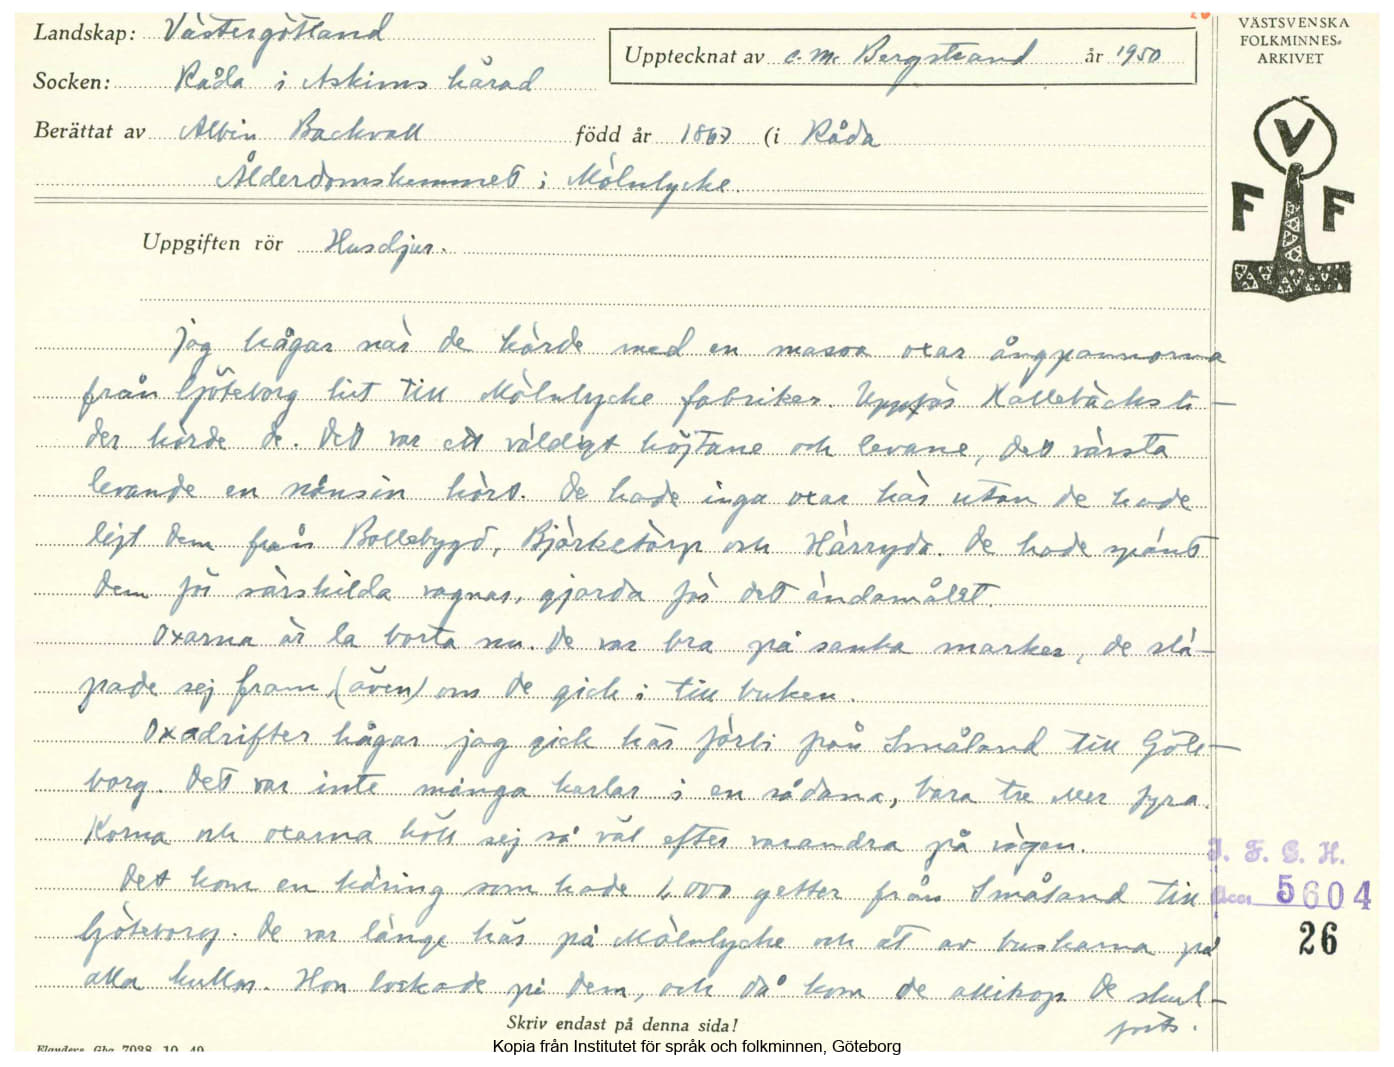 Landskap: Västergötland
Upptecknat av C. M. Bergstrand år 1950
VÄSTSVENSKA
FOLKMINNES-
ARKIVET
Socken: Råda i Askims härad
Berättat av Albin Backvall född år 1867 (i Råda
Ålderdomshemmet i Mölnlycke.
V
F F
Uppgiften rör Husdjur.
jag hågar när de körde med en massa oxar ångpannorna
från Göteborg hit till Mölnlycke fabriker. Uppför Kallebäcksli-
der körde de. Det var ett väldigt höjtane och levane, det värsta
levande en nånsin hört. De hade inga oxar här utan de hade
lejt dem från Bollebygd, Björketorp och Härryda. De hade spänt
dem för särskilda vagnar, gjorda för det ändamålet.
Oxarna är la borta nu. De var bra på sanka marker, de slä-
pade sej fram (även) om de gick i till buken.
Oxadrifter hågar jag gick här förbi från Småland till Göte-
borg. Det var inte många karlar i en sådana, bara tre eller fyra.
Korna och oxarna höll sej så väl efter varandra på vägen.
Det kom en käring som hade 1,000 getter från Småland till
Göteborg. De var länge här på Mölnlycke och åt av buskarna på
alla kullar. Hon lockade på dem, och då kom de allihop De skul-
forts.
I. F. G. H.
Acc. 5604
26
Skriv endast på denna sida!
Flanders Gbg 7038 10 49
Kopia från Institutet för språk och folkminnen, Göteborg